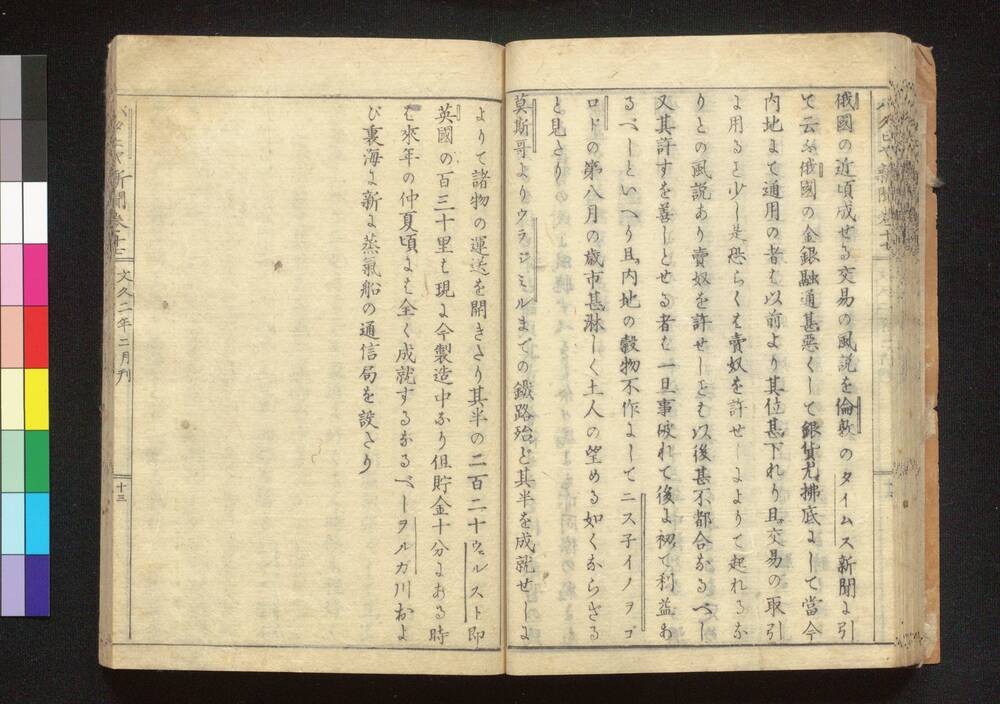 俄國の近頃成せる交易の風説を倫敦のタイムス新聞に引
て云ふ俄國の金銀融通甚悪くして銀貨尤拂底にして當今
内地まて通用の者も以前より其位甚下れり且交易の取引
に用ると少し是恐らくは賣奴を許せしによりて起れるな
りとの風説あり賣奴を許せしとも以後甚不都合なるべし
又其許すを善しとせる者も一旦事破れて後に初て利益あ
るべしといへり且内地の穀物不作にしてニス子イノヲゴ
ロドの第八月の歳市甚淋しく土人の望める如くならざる
と見たり
莫斯哥よりウラジミルまでの鐵路殆と其半を成就せしに
よりて諸物の運送を開きたり其半の二百二十ウェルスト即
英國の百三十里も現に今製造中なり但貯金十分にある時
は來年の仲夏頃にも全く成就するなるべしヲルガ川およ
び裏海に新に蒸氣船の通信局を設たり
バタヒヤ新聞巻十二
文久二年二月刊
十三